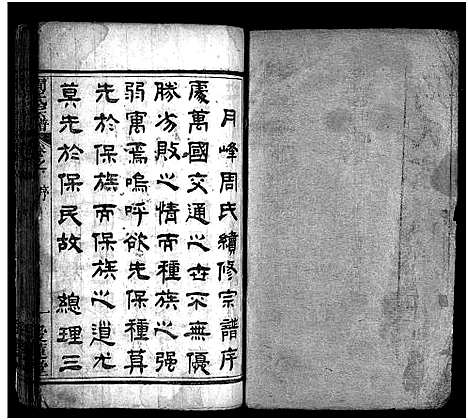 月峰周氏續修宗譜序
處萬國交通之世不無優
勝劣敗之情而種族之强
弱寓焉嗚呼欲先保種莫
先於保族而保族之道尤
莫先於保民故　總理三